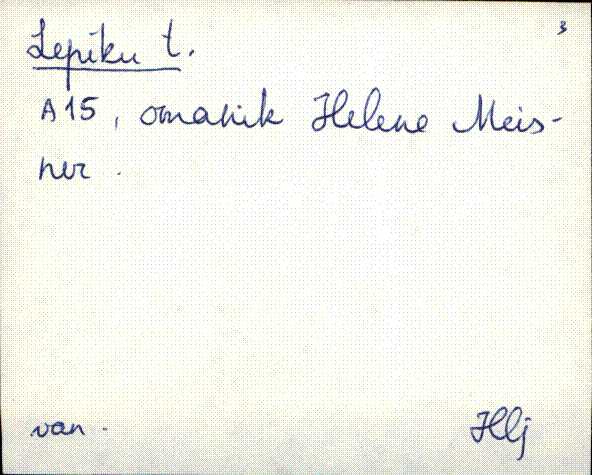 3
Lepiku t.
A15, omanik Helene Meis-
ner.
van.
Hlj